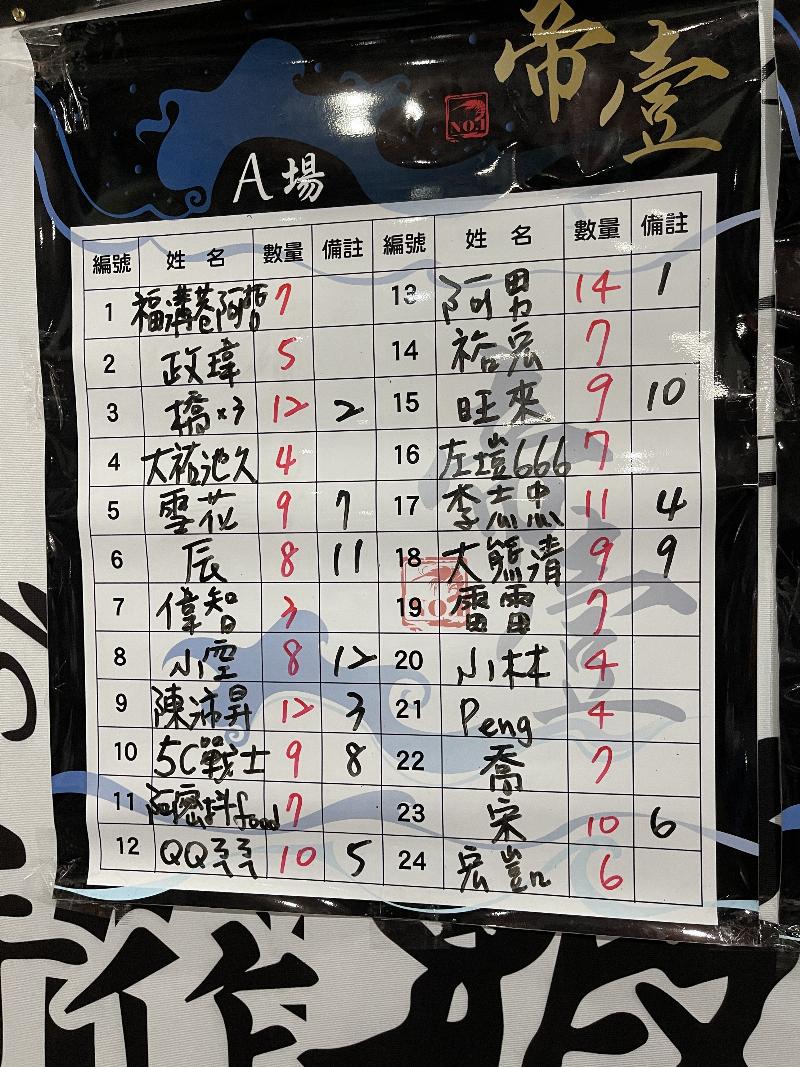 帝壹
NO.1
A場
編號 姓名 數量 備註 編號 姓名 數量 備註
1 福溝巷阿哲 7 13 阿男 14 1
2 政瑋 5 14 裕宏 7
3 橋x3 12 2 15 旺來 9 10
4 大祐池久 4 16 左塏666 7
5 雪花 9 7 17 李志忠 11 4
6 辰 8 11 18 大熊清 9 9
7 偉智 3 19 雷雷 7
8 小空 8 12 20 小林 4
9 陳沛昇 12 3 21 Peng 4
10 5C戰士 9 8 22 喬 7
11 阿密抖food 7 23 宋 10 6
12 QQ 10 5 24 宏凱 6